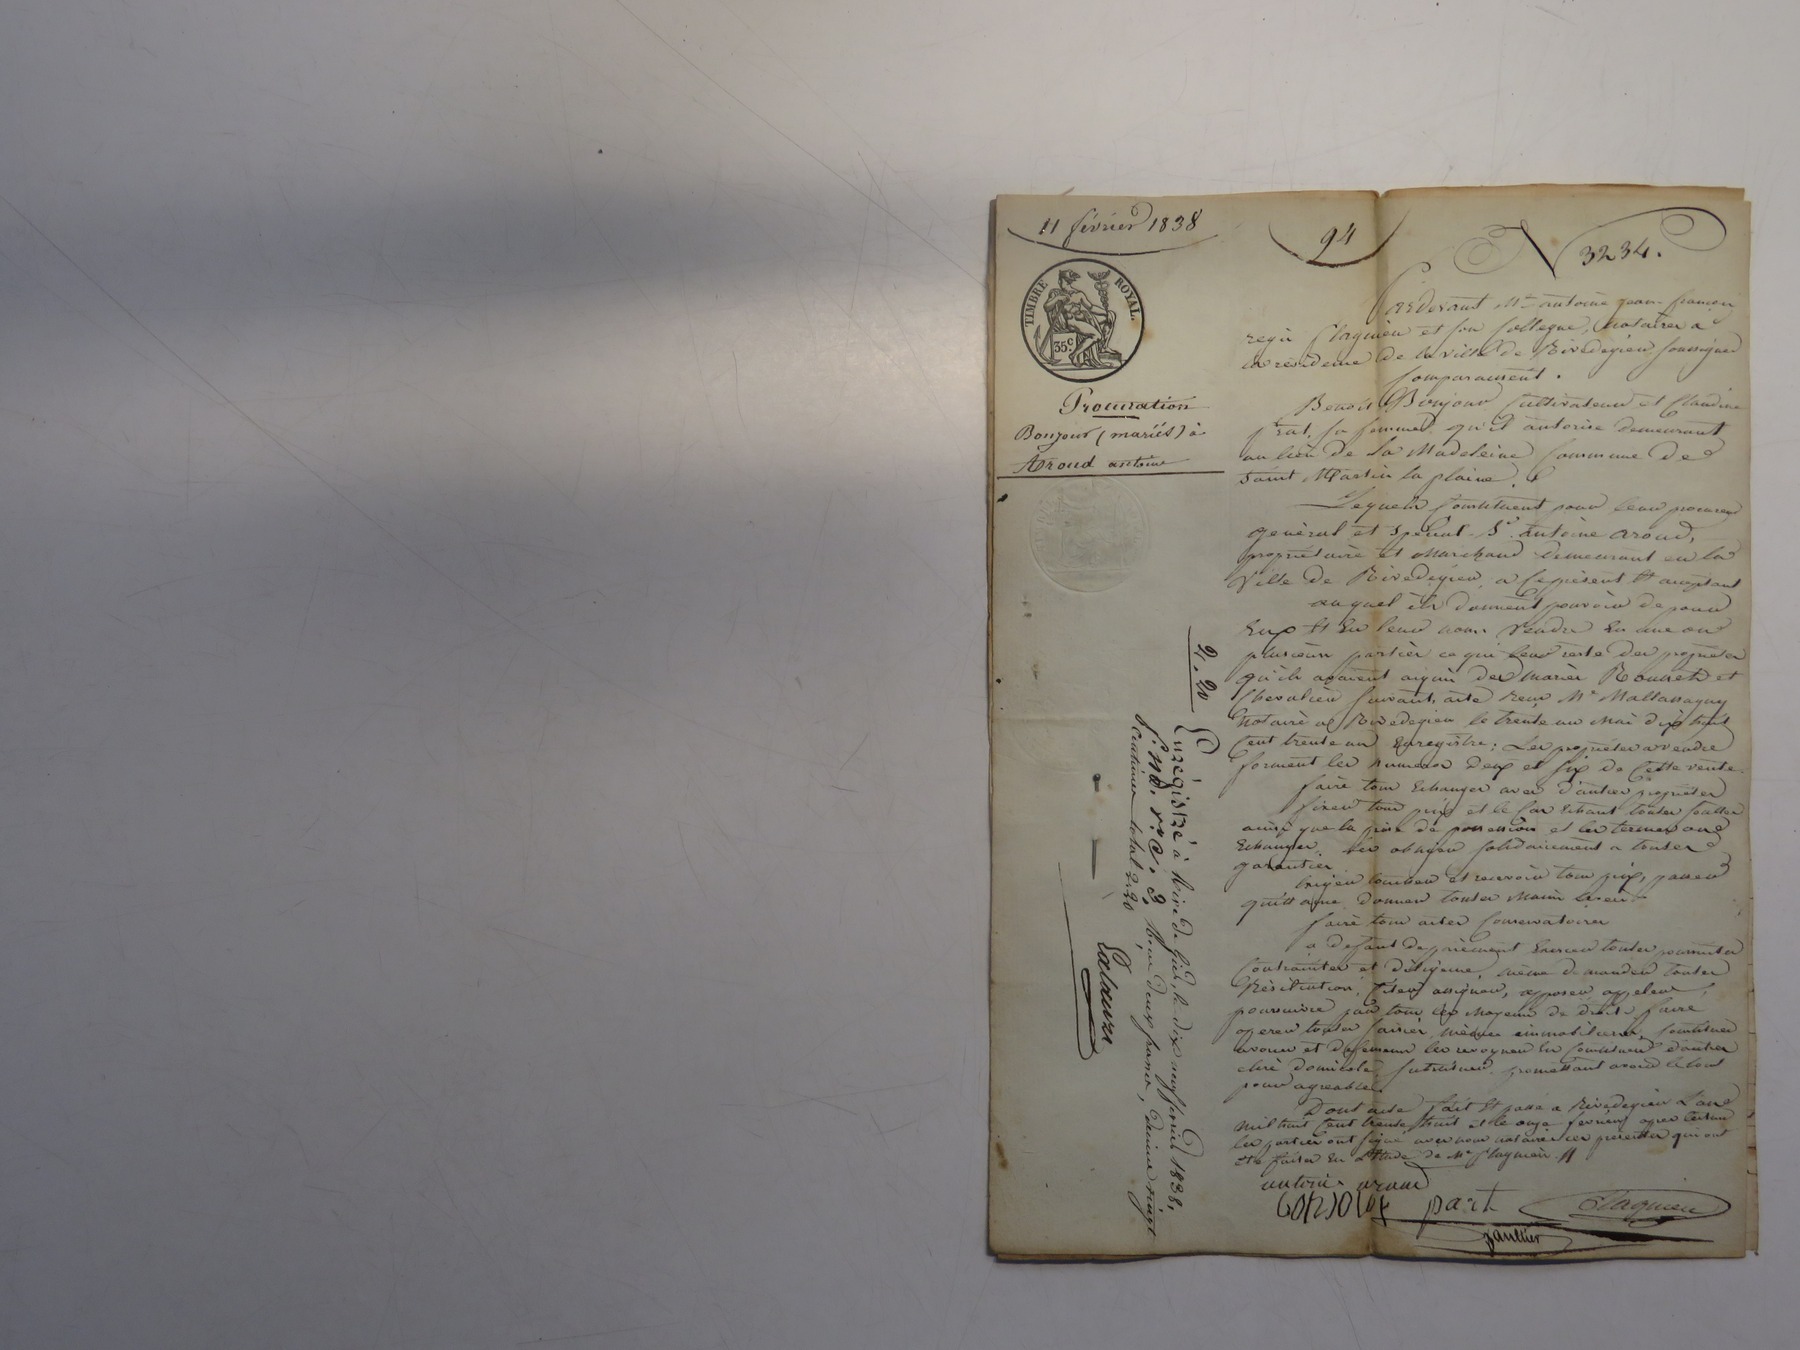 11 février 1838
94
N 3234.
TIMBRE ROYAL
35 c.
Procuration
Bonjour (mariés) à
Aroud antoine
Pardevant Me antoine jean-françois
régis Plagnieu et son Collegue, Notaires a
la résidence de la ville de Rivedegier soussignés
Comparaissent.
Benoit Bonjour Cultivateur et Claudine
prat, sa femme qu'il autorise demeurant
au lieu de La Madeleine Commune de
Saint Martin la plaine.
Lesquels Constituent pour leur procureur
général et spécial Sr. Antoine aroud,
propriétaire et Marchand demeurant en la
Ville de Rivedegier, a Ce présent et acceptant
auquel ils donnent pouvoir de pour
Eux et En leur nom Vendre En une ou
plusieurs parties ce qui leur reste des propriétés
qu'ils avaient acquis des mariés et
Chevalier suivant acte reçu Me
Notaire a Rivedegier le trente un Mai dix huit
Cent trente un Enregistré; Les propriétés a vendre
forment les numeros deux et six de Cette vente.
faire tous Echanges avec d'autres propriétés
fixer tous prix et le Cas Echéant toutes soultes
ainsi que la prise de possession et les termes
Echanges, les obliger solidairement a toutes
garanties
Exiger toucher et recevoir tous prix, passer
quittance donner toutes Mains levées
faire tous actes Conservatoires
a défaut de paiement Exercer toutes poursuites
Contraintes et diligences, même demander toutes
Résiliation, Citer, assigner, opposer, appeler,
poursuivre par tous les Moyens de droit, faire
operer toutes saisies, même immobilieres, Constituer
avoués et defenseurs les revoquer En Constituer d'autres
élire domicile, substituer, promettant avoir le tout
pour agreable
Dont acte fait et passé a Rivedegier L'an
mil huit Cent trente huit et le onze février apres lecture
les parties ont signé avec nous notaires ces presentes qui ont
Eté faites En L'Etude de Me Plagnieu.
antoine aroud
bonjour prat Plagnieu
gaultier
2, 20
Enrégistré à Rive de Gier, le dix neuf février 1838,
fo. 118. Vo. C. 3, Reçu deux francs, décime vingt
Centimes total 2.20